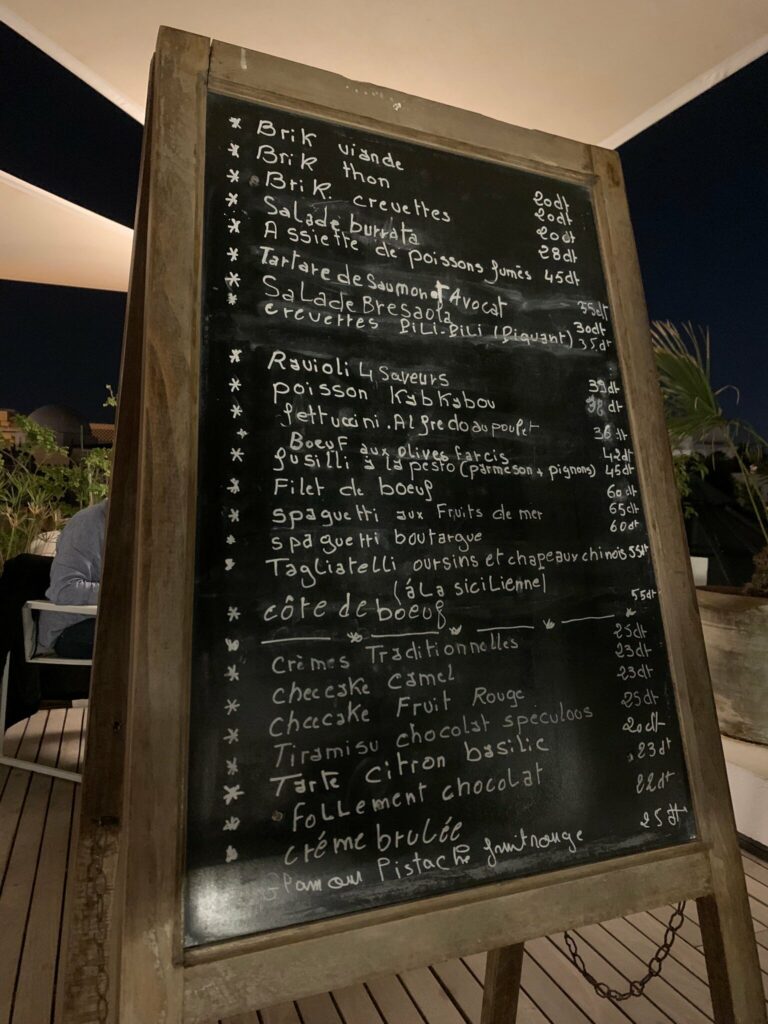 * Brik viande 20dt
* Brik thon 20dt
* Brik crevettes 20dt
* Salade burrata 28dt
* Assiette de poissons fumés 45dt
* Tartare de Saumon et Avocat 35dt
* Salade Bresaola 30dt
* crevettes Pili-Pili (Piquant) 35dt
* Ravioli 4 Saveurs 39dt
* poisson KabKabou 38dt
* fettuccini. Alfredo au poulet 36dt
* Boeuf aux olives farcis 42dt
* fusilli à la pesto (parmeson + pignons) 45dt
* Filet de boeuf 60dt
* spaguetti aux Fruits de mer 65dt
* spaguetti boutargue 60dt
* Tagliatelli oursins et chapeaux chinois 55dt
(áLa sicilienne)
* côte de boeuf 55dt
* Crèmes Traditionnelles 25dt
* checcake Camel 23dt
* checcake Fruit Rouge 23dt
* Tiramisu chocolat speculoos 25dt
* Tarte citron basilic 20dt
* follement chocolat 23dt
* créme brulée 22dt
Pistache fruit rouge 25dt